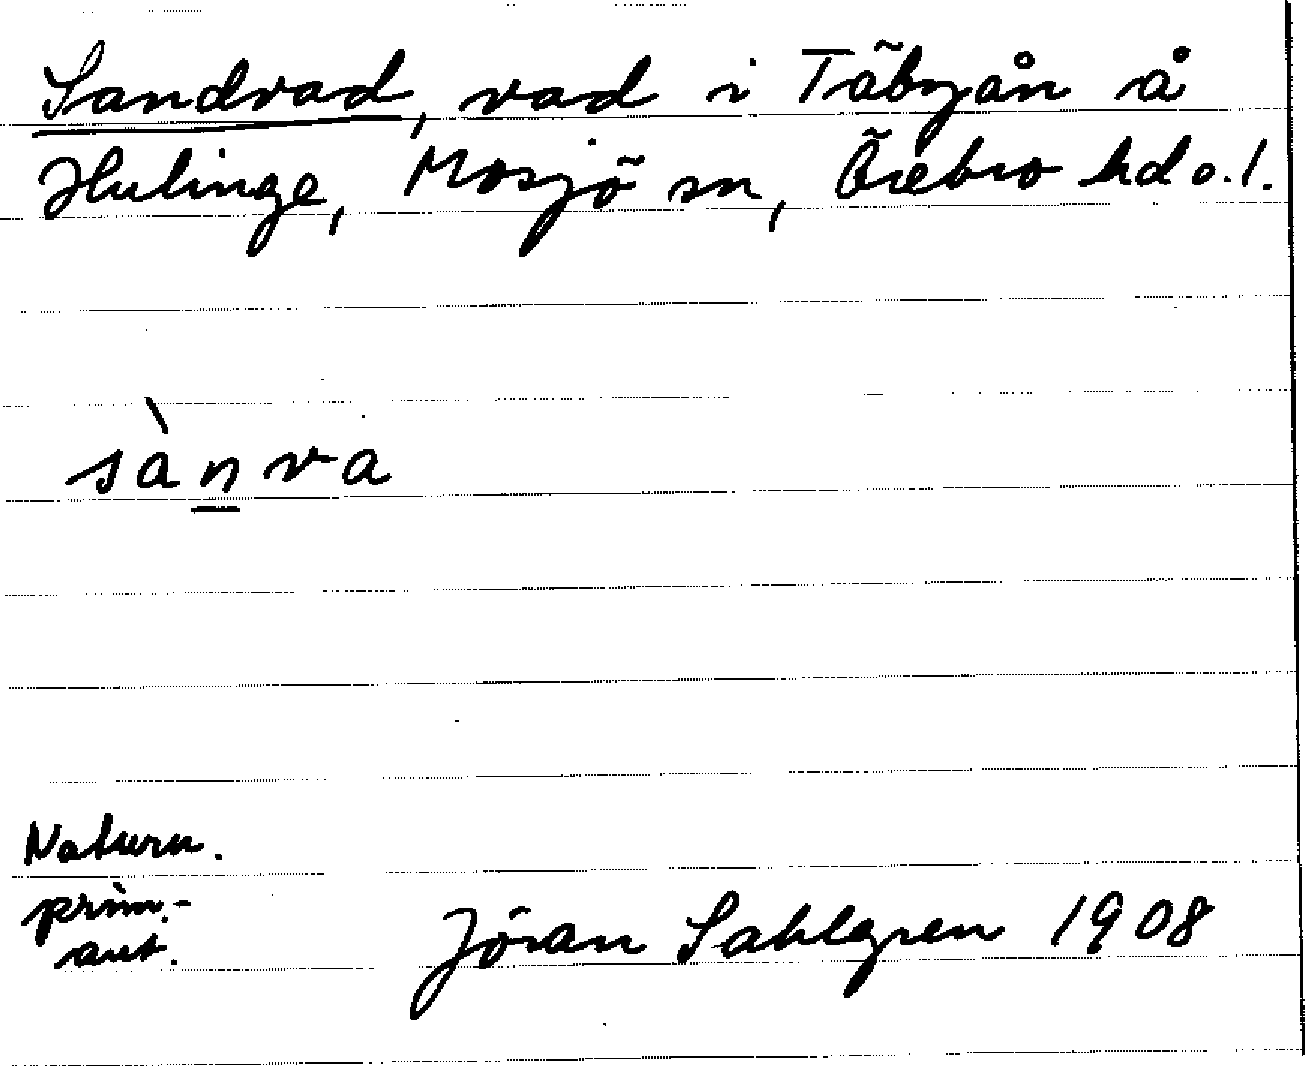 Sandvad, vad i Täbyån å
Hulinge, Mosjö sn, Örebro hd o. l.
sànva
Naturn.
prim.-
ant.
Jöran Sahlgren 1908